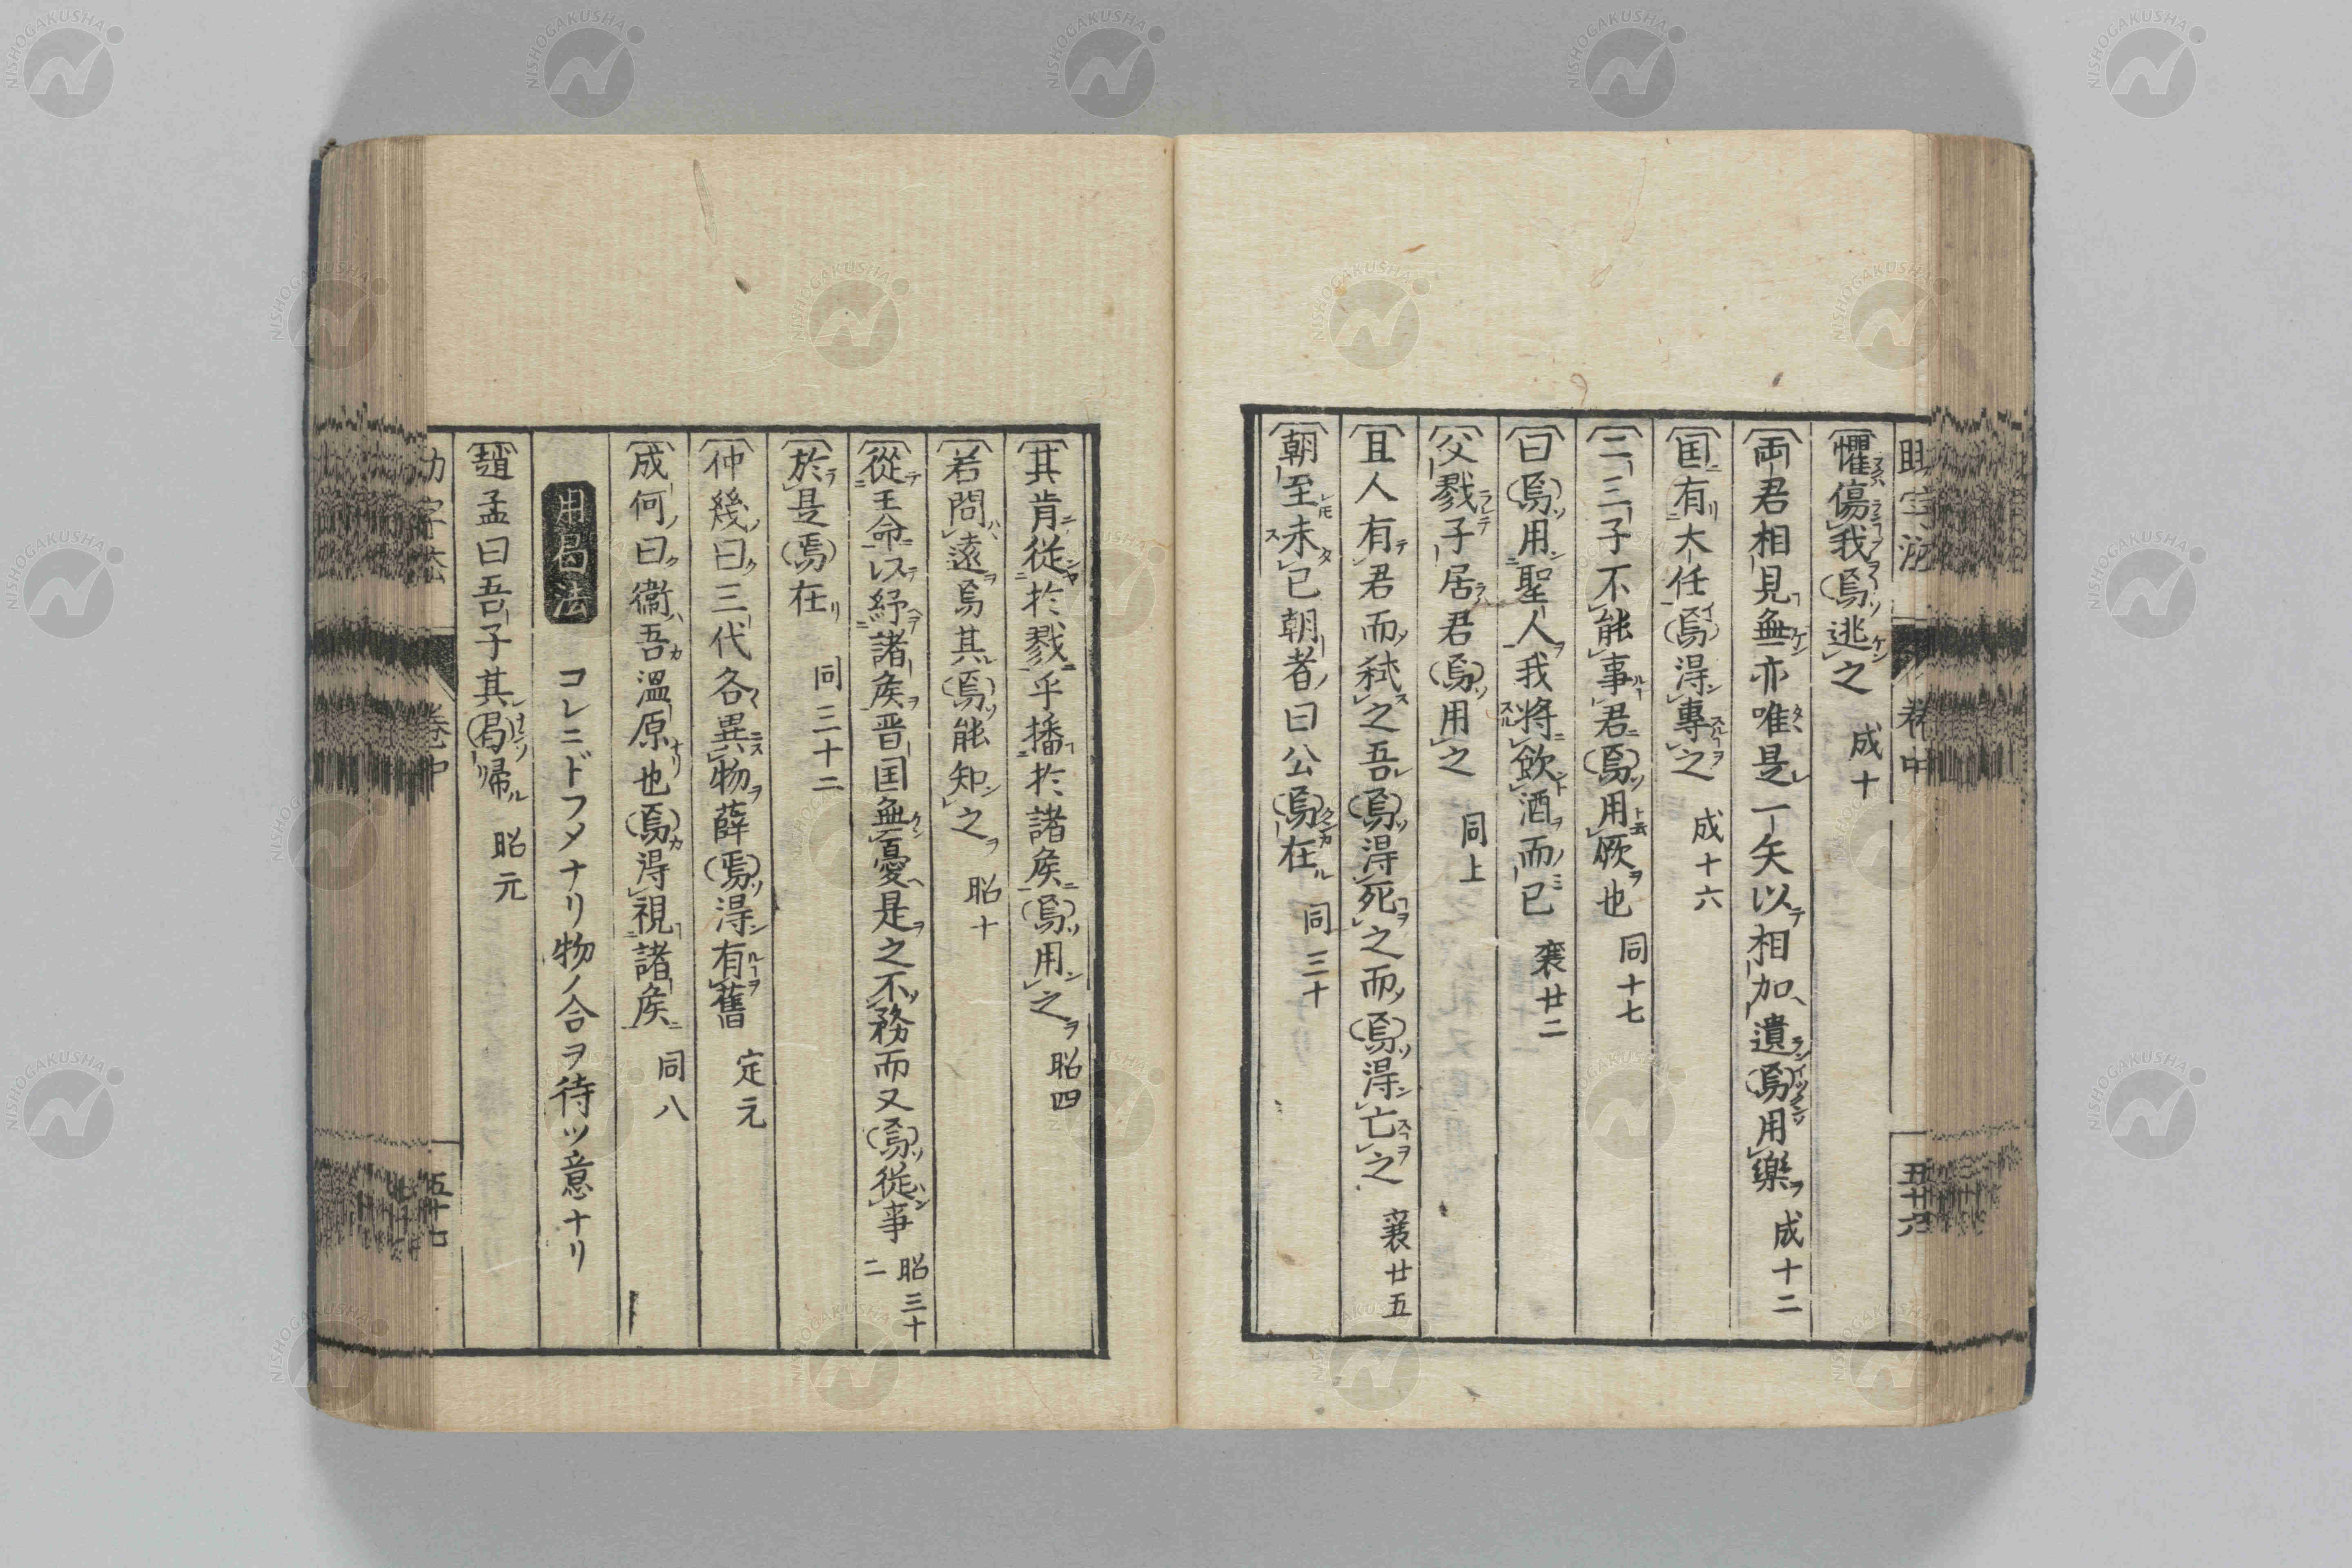 懼傷我焉逃之 成十
両君相見無亦唯是一矢以相加遺焉用樂 成十二
国有大任焉得專之 成十六
二三子不能事君焉用厥也 同十七
曰焉用聖人我將飲酒而已 襄廿二
父戮子居君焉用之 同上
且人有君而弑之吾焉得死之而焉得亡之 襄廿五
朝至未已朝者曰公焉在 同三十
五十六
其肯從於戮乎播於諸矦焉用之 昭四
若問遠焉其焉能知之 昭十
從王命以紓諸矦晋国無憂是之不務而又焉從事 昭三十二
於是焉在 同三十二
仲幾曰三代各異物薛焉得有舊 定元
成何曰衞吾溫原也焉得視諸矦 同八
用曷法 コレニドフメナリ物ノ合ヲ待ツ意ナリ
趙孟曰吾子其曷帰 昭元
卷中
五十七
NISHOGAKUSHA